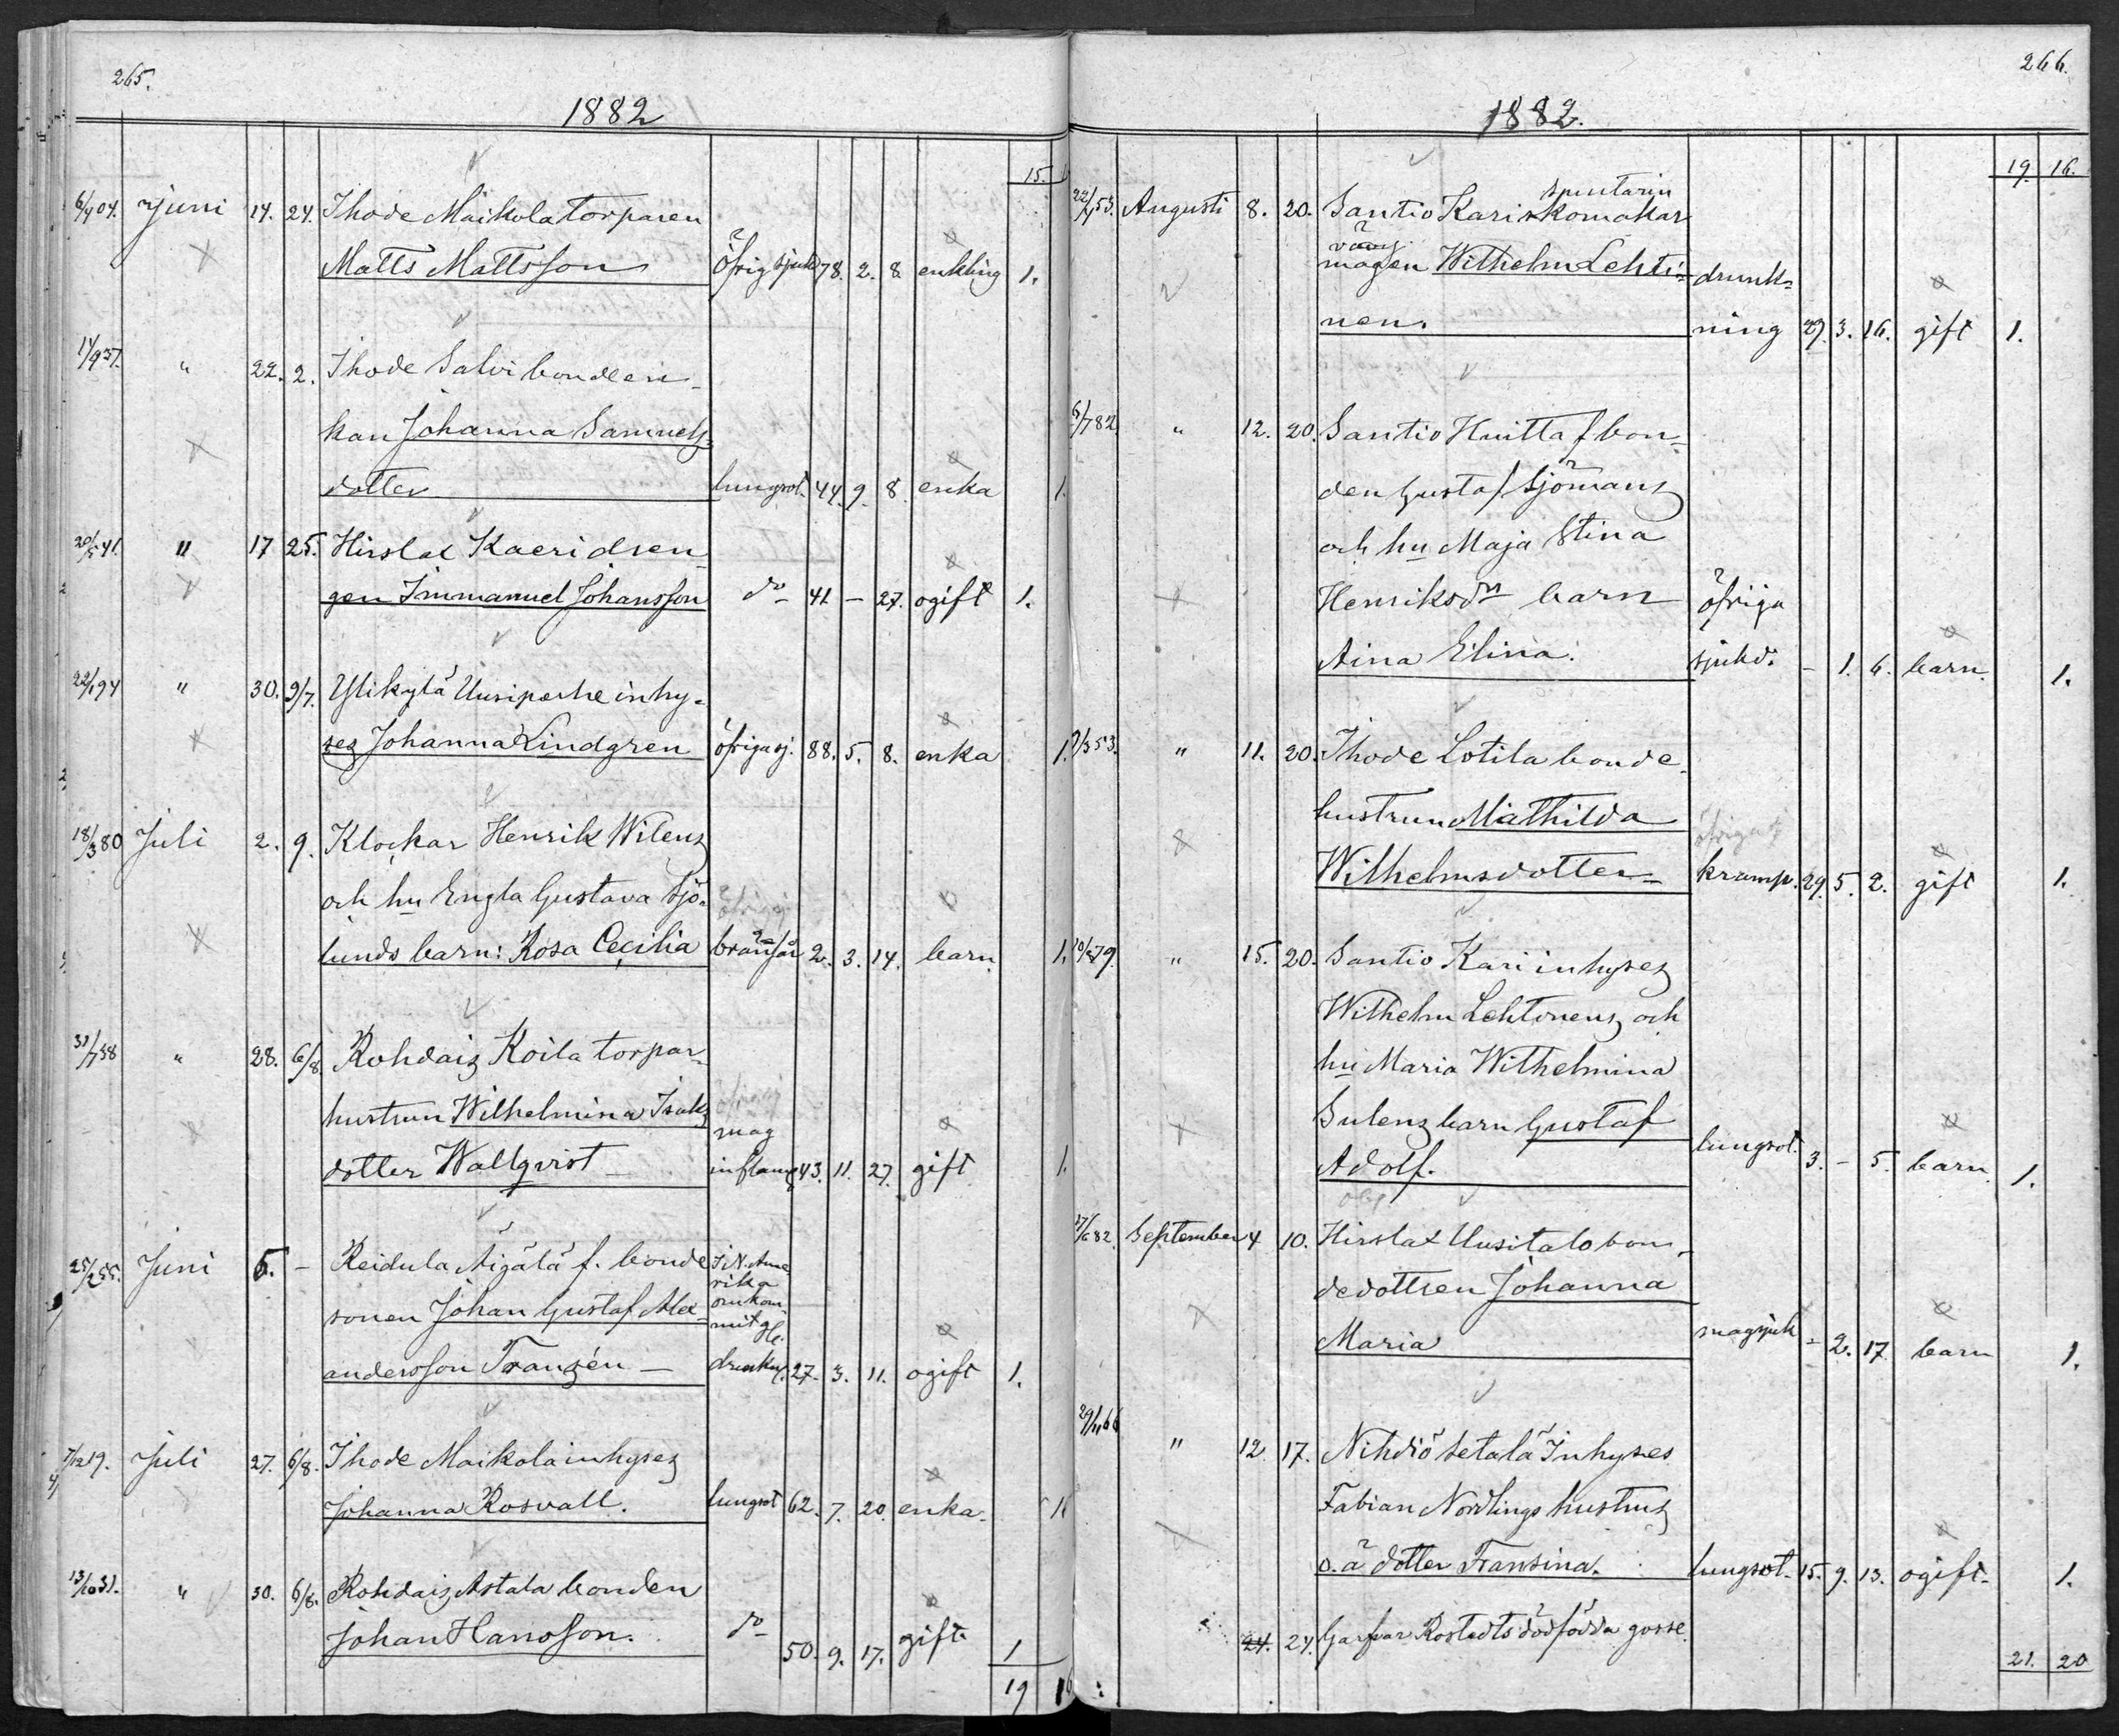 265.
1882
15.
6/4 04. Juni 14. 24. Ihode Maikola torparen
Matts Mattsson öfrig sjuk 78. 2. 8. enkling 1.
14/9 37. " 22. 2. Ihode Salvi bondeen-
kan Johanna Samuels-
dotter lungsot. 44. 9. 8. enka 1.
20/5 41. " 17 25. Hirslax Kaeri dren-
gen Immanuel Johansson do 41 - 27. ogift 1.
22/1 94 " 30. 9/7. Ylikylä Uusiperhe inhy-
ses Johanna Lindgren öfriga sj. 88. 5. 8. enka 1.
18/3 80 Juli 2. 9. Klockar Henrik Wilens
och hu Engla Gustava Sjö-
lunds barn: Rosa Cecilia brännsår 2. 3. 14. barn 1.
31/7 38 " 28. 6/8. Rohdais Koila torpar-
hustrun Wilhelmina Isaks mag
dotter Wallqvist inflam 43. 11. 27. gift 1.
25/2 55. Juni 5. - Reidula Äigälä f. bonde I N. Ame-
rika
sonen Johan Gustaf Alex- omkom-
mit gn.
andersson Franzén drunkn. 27. 3. 11. ogift 1.
7/12 19. Juli 27. 6/8. Ihode Maikola inhyses
Johanna Rosvall. lungsot 62. 7. 20. enka. 1.
13/10 31. " 30. 6/8. Rohdais Astala bonden
Johan Hansson. do 50. 9. 17. gift 1
19 16
266.
1882.
19. 16.
sprutarin
22/4 53. Augusti 8. 20. Santio Kari skomakar
mågen Wilhelm Lehti- drunk-
nen. ning 29. 3. 16. gift 1.
6/7 82. " 12. 20. Santio Huitta f bon-
den Gustaf Sjömans
och hu Maja Stina
Henriksdr barn öfriga
Aina Elina. sjukd. - 1. 6. barn. 1.
9/3 53. " 11. 20. Ihode Lotila bonde-
hustrun Mathilda
Wilhelmsdotter kramp. 29. 5. 2. gift 1.
10/8 79. " 15. 20. Santio Kari inhyses
Wilhelm Lehtonens och
hu Maria Wilhelmina
Sulens barn Gustaf
Adolf. lungsot. 3. - 5. barn 1.
17/6 82. September 4 10. Hirslax Uusitalo bon-
dedottren Johanna
Maria magsjuk - 2. 17 barn 1.
29/11 66 " 12. 17. Nihdiö Setälä Inhyses
Fabian Nordlings hustrus
o.ä dotter Fransina. lungsot. 15. 9. 13. ogift. 1.
24. 24. Garfvar Rostedts dödfödda gosse.
21. 20